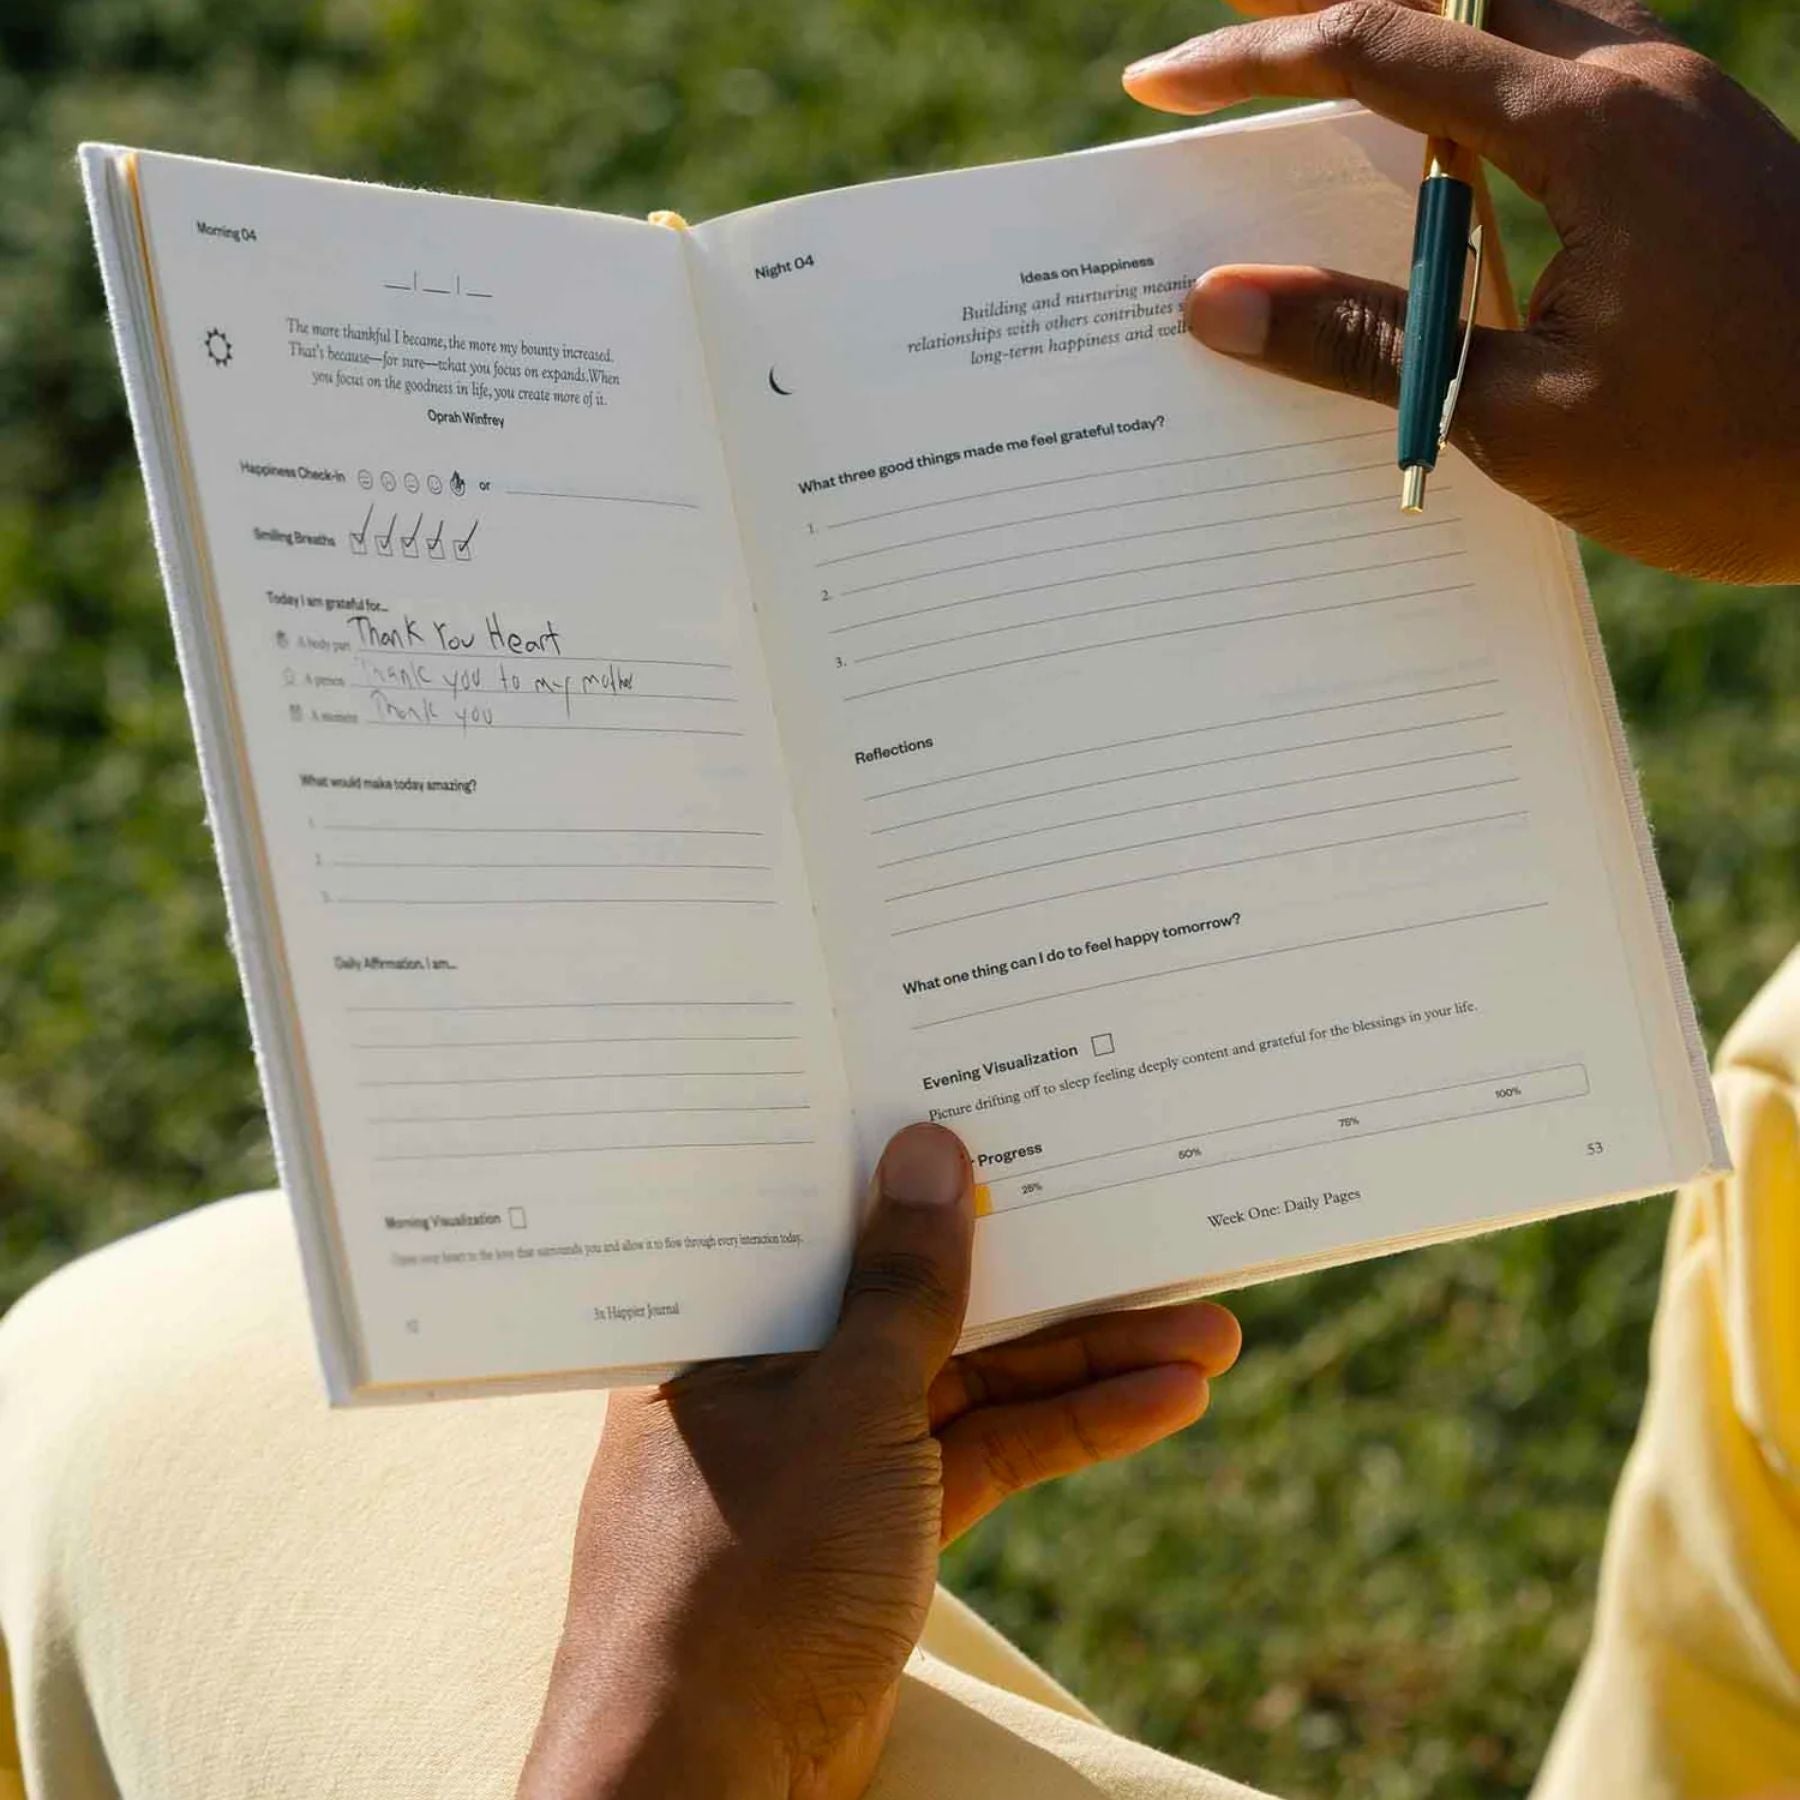 Morning 04
The more thankful I became, the more my bounty increased.
That's because—for sure—what you focus on expands. When
you focus on the goodness in life, you create more of it.
Oprah Winfrey
Happiness Check-In or
Smiling Breaths
Today I am grateful for...
A body part Thank You Heart
A person Thank you to my mother
A moment Thank you
What would make today amazing?
1.
2.
3.
Daily Affirmation. I am...
Morning Visualization
your heart to the love that surrounds you and allow it to flow through every interaction today.
3x Happier Journal
Night 04
Ideas on Happiness
Building and nurturing
relationships with others contributes
long-term happiness and
What three good things made me feel grateful today?
1.
2.
3.
Reflections
What one thing can I do to feel happy tomorrow?
Evening Visualization
Picture drifting off to sleep feeling deeply content and grateful for the blessings in your life.
Progress
25% 50% 75% 100%
Week One: Daily Pages
53